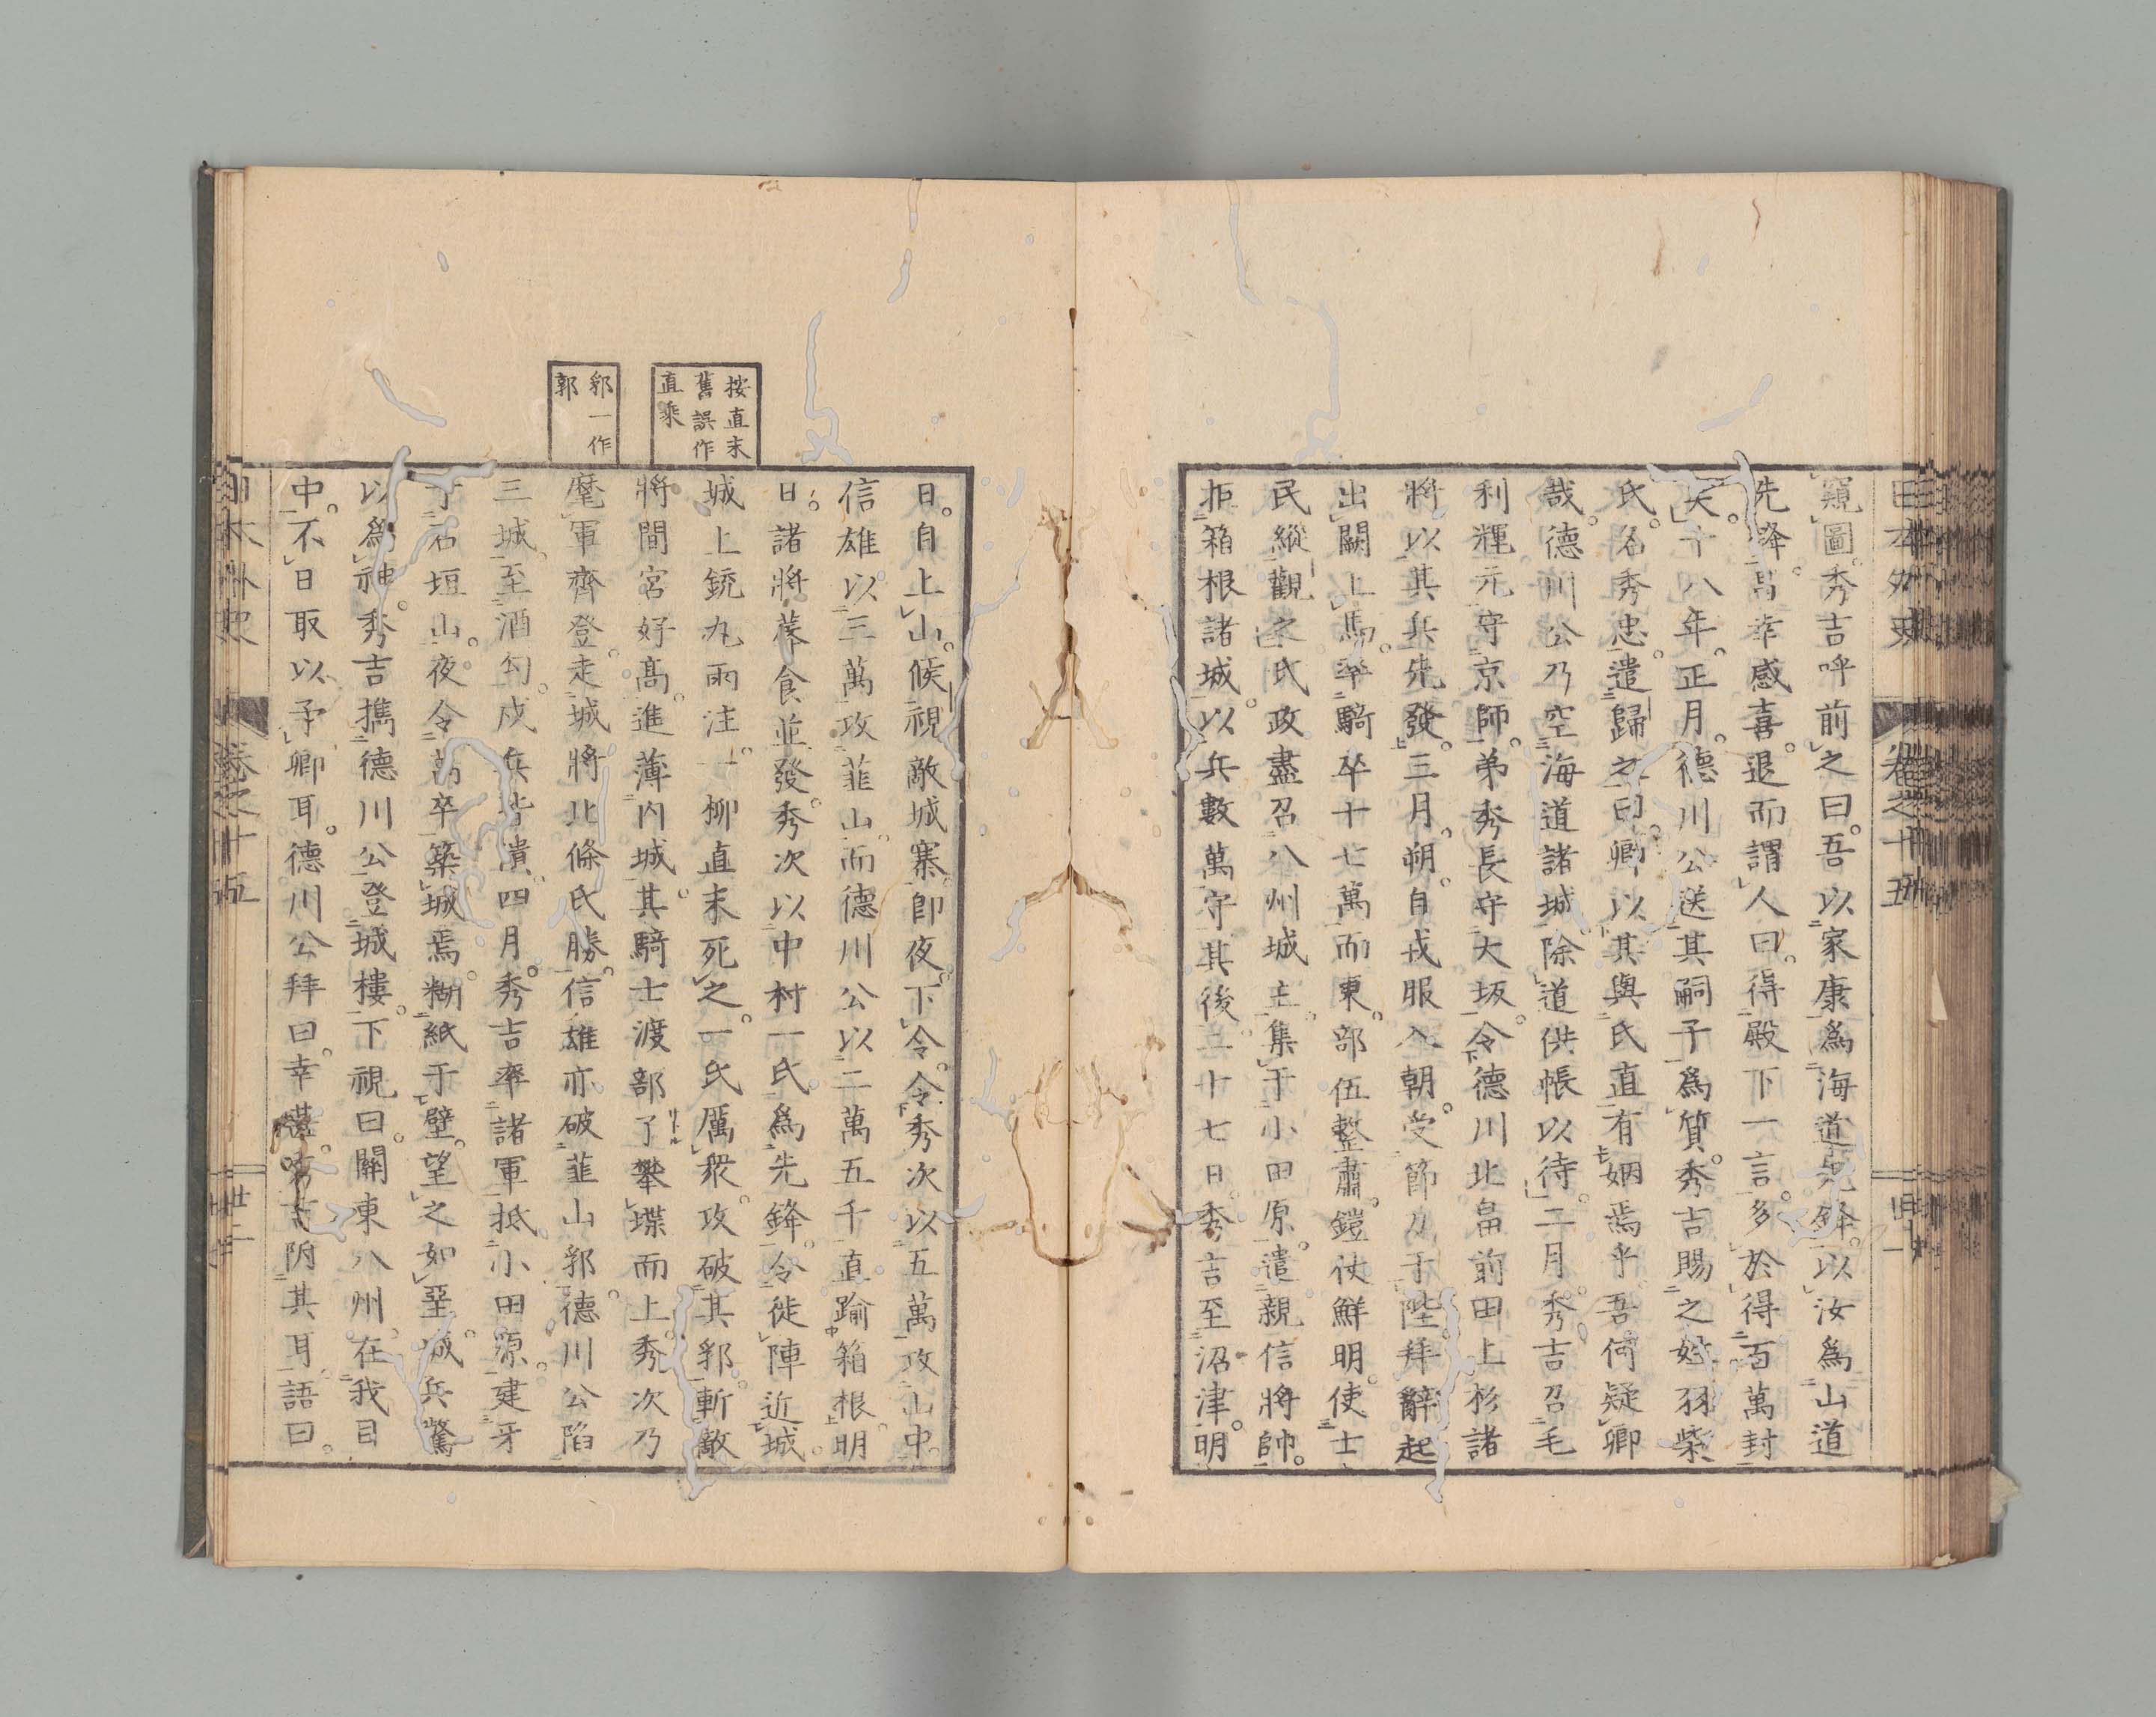 日本外史 卷之十五
窺圖秀吉呼前之曰吾以家康爲海道先鋒以汝爲山道
先降昌幸感喜退而謂人曰得殿下一言多於得百萬封
矣十八年正月德川公送其嗣子爲質秀吉賜之姓羽柴
氏名秀忠遣歸之曰卿以其與氏直有姻焉乎吾何疑卿
哉德川公乃空海道諸城除道供帳以待二月秀吉召毛
利輝元守京師弟秀長守大坂令德川北畠前田上杉諸
將以其兵先發三月朔自戎服入朝受節刀于陛拜辭起
出闕上馬率騎卒十七萬而東部伍整肅鎧仗鮮明使士
民縱觀之氏政盡召八州城主集于小田原遣親信將帥
拒箱根諸城以兵數萬守其後二十七日秀吉至沼津明
日自上山候視敵城寨卽夜下令令秀次以五萬攻山中
信雄以三萬攻韮山而德川公以二萬五千直踰箱根明
日諸將蓐食並發秀次以中村一氏爲先鋒令徙陣近城
城上銃丸雨注一柳直末死之一氏厲衆攻破其郛斬敵
將間宮好高進薄內城其騎士渡部了攀堞而上秀次乃
麾軍齊登走城將北條氏勝信雄亦破韮山郭德川公陷
三城至酒匂戍兵皆潰四月秀吉率諸軍抵小田原建牙
于石垣山夜令萬卒築城焉糊紙于壁望之如堊城兵驚
以爲神秀吉攜德川公登城樓下視曰關東八州在我目
中不日取以予卿耳德川公拜曰幸甚秀吉附其耳語曰
按直末
舊誤作
直乘
郛一作
郭
日本外史 卷之十五 廿二